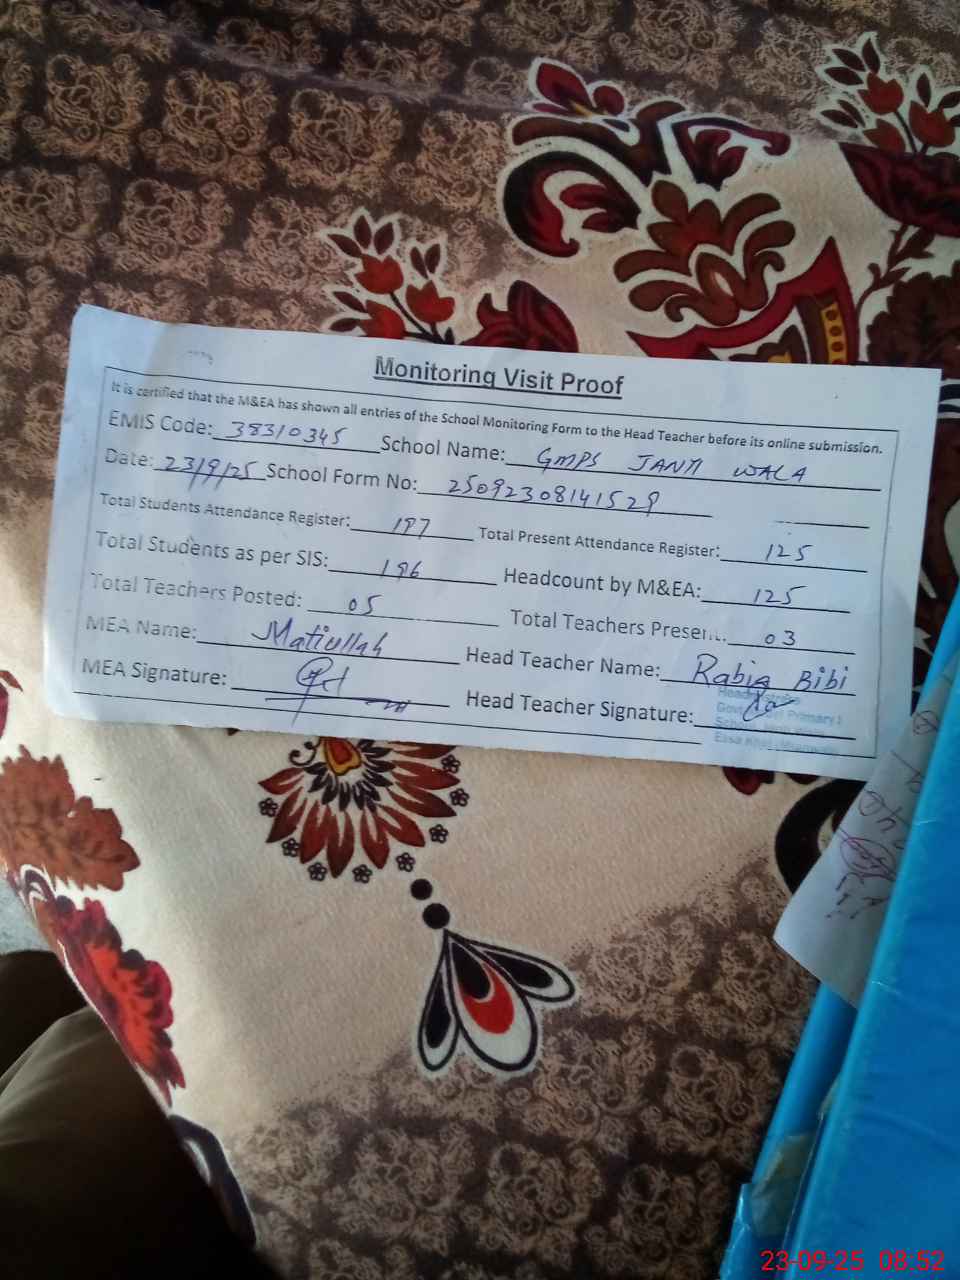 Monitoring Visit Proof
It is certified that the M&EA has shown all entries of the School Monitoring Form to the Head Teacher before its online submission.
EMIS Code: 38310345 School Name: GMPS JANM WALA
Date: 23/9/25 School Form No: 25092308141529
Total Students Attendance Register: 197 Total Present Attendance Register: 125
Total Students as per SIS: 196 Headcount by M&EA: 125
Total Teachers Posted: 05 Total Teachers Present: 03
MEA Name: Matiullah Head Teacher Name: Rabia Bibi
MEA Signature: Head Teacher Signature:
Govt. Primary
23-09-25 08:52